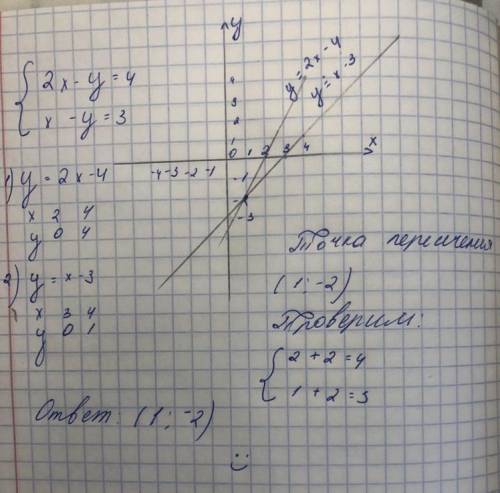 2x - y = 4
x - y = 3
1) y = 2x - 4
x 2 4
y 0 4
2) y = x - 3
x 3 4
y 0 1
y
y = 2x - 4
y = x - 3
4
3
2
1
-4 -3 -2 -1 0 1 2 3 4 x
-1
-3
Точка пересичения
(1; -2)
Проверим:
2 + 2 = 4
1 + 2 = 3
Ответ: (1; -2)